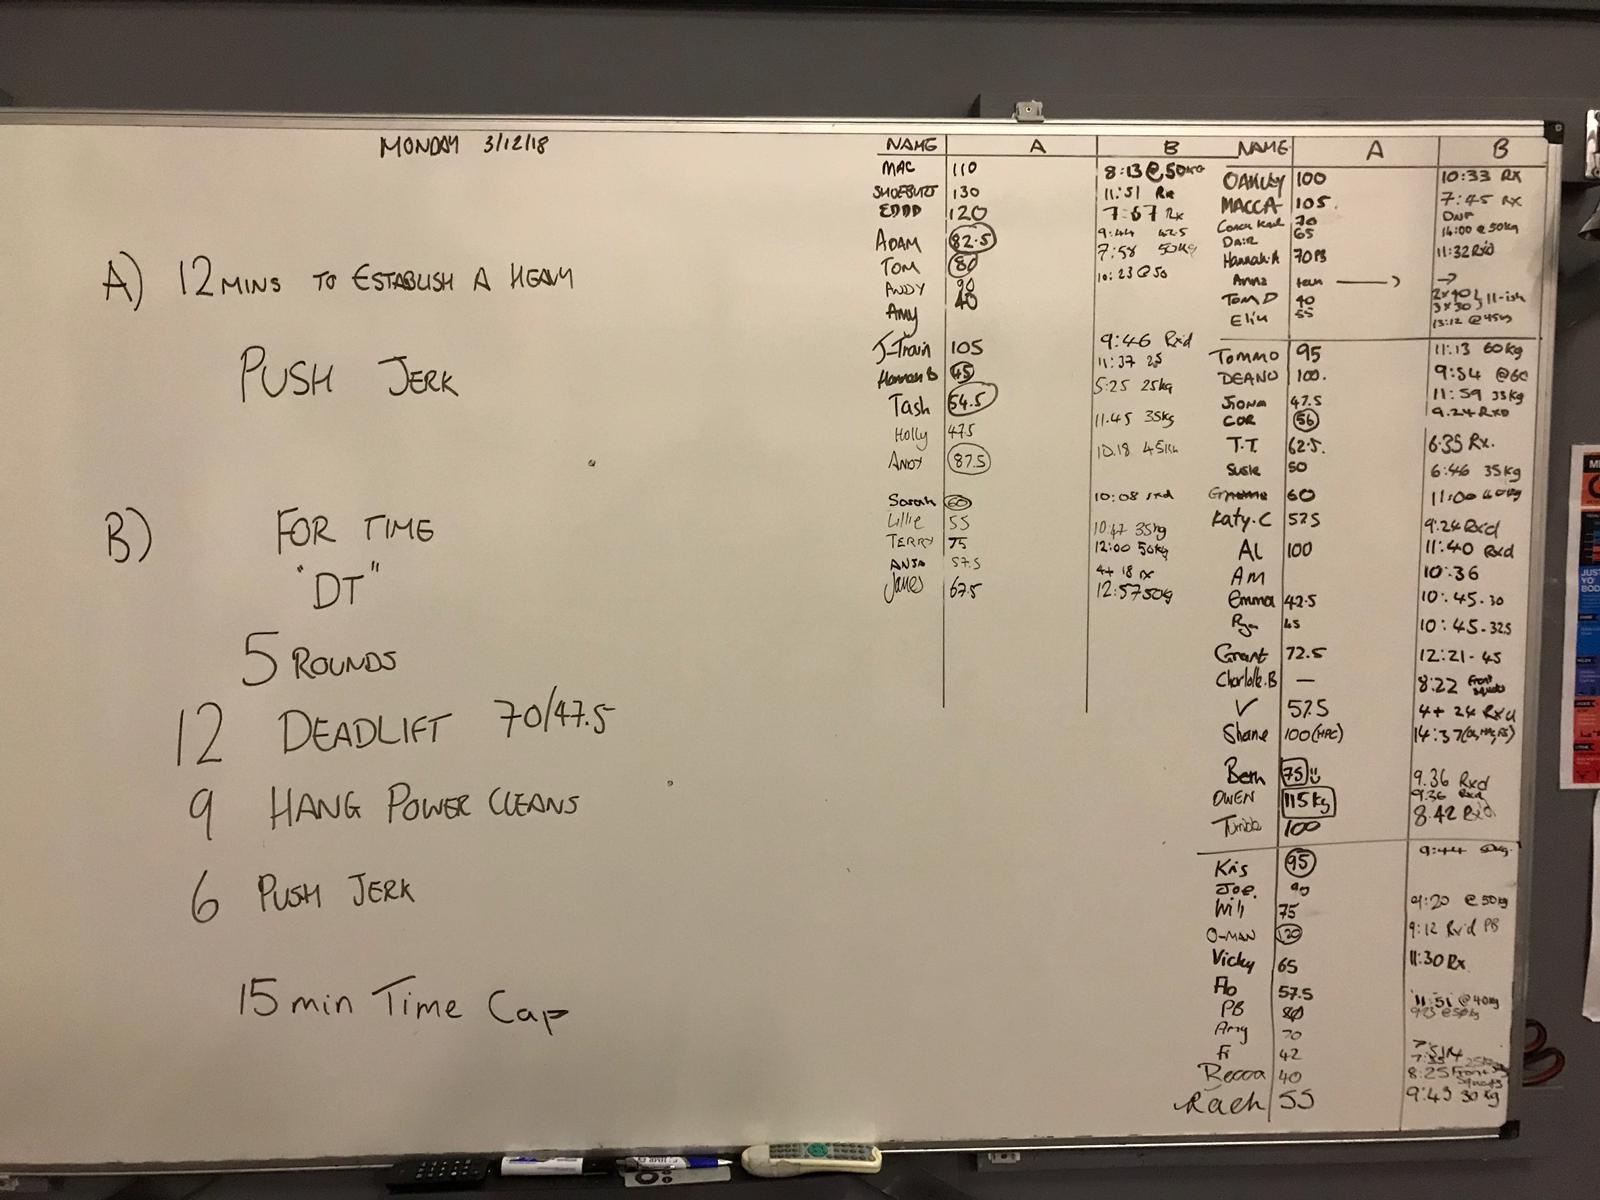 MONDAY 3/12/18
A) 12 MINS TO ESTABLISH A HEAVY
PUSH JERK
B) FOR TIME
"DT"
5 ROUNDS
12 DEADLIFT 70/47.5
9 HANG POWER CLEANS
6 PUSH JERK
15 min Time Cap
NAME A B
MAC 110 8:13 @ 50KG
130 11:51 Rx
EDDD 120 7:57 Rx
ADAM 82.5 9:44 42.5
TOM 80 7:58 50kg
ANDY 90 10:23 @ 50
Amy 40
J-Train 105 9:46 Rxd
Hannah B 45 11:37 25
Tash 54.5 5:25 25kg
Holly 47.5 11.45 35kg
ANDY 87.5 10.18 45kg
Sarah 60 10:08 rxd
Lillie 55 35kg
TERRY 75 12:00 50kg
ANJA 57.5 4+ 18 rx
James 67.5 12:57 50kg
NAME A B
OAKLEY 100 10:33 RX
MACCA 105. 7:45 RX
Coach 70 DNF
65 14:00 @ 50kg
Hannah.A 70 PB 11:32 Rxd
Anna →
Tom D 40 2x40 3x30 } 11-ish
55 13:12 @ 45kg
TOMMO 95 11:13 60kg
DEANO 100. 9:54 @60
47.5 11:59 35kg
COR 56 9.24 RXD
T.T. 62.5. 6:35 Rx.
Susie 50 6:46 35kg
60 11:00 40kg
Katy.C 57.5 9:24 Rxd
AL 100 11:40 Rxd
AM 10:36
Emma 42.5 10:45.30
45 10:45.32.5
Grant 72.5 12:21-45
Charlotte.B — 8:22 Front Squats
V 57.5 4+ 24 Rxd
Shane 100 (HPC) 14:37
Beth 75 9.36 Rxd
OWEN 115kg 9.36 Rxd
100 8.42 Rxd
Kris 95 9:44 50kg.
Joe. 90
Will 75 9:20 @ 50kg
O-MAN 120 9:12 Rx'd PB
Vicky 65 11:30 Rx
Flo 57.5
PB 80 11:51 @ 40kg
Amy 70
Fi 42
Becca 40 8:25 Front Squats
Rach 55 9:43 30kg